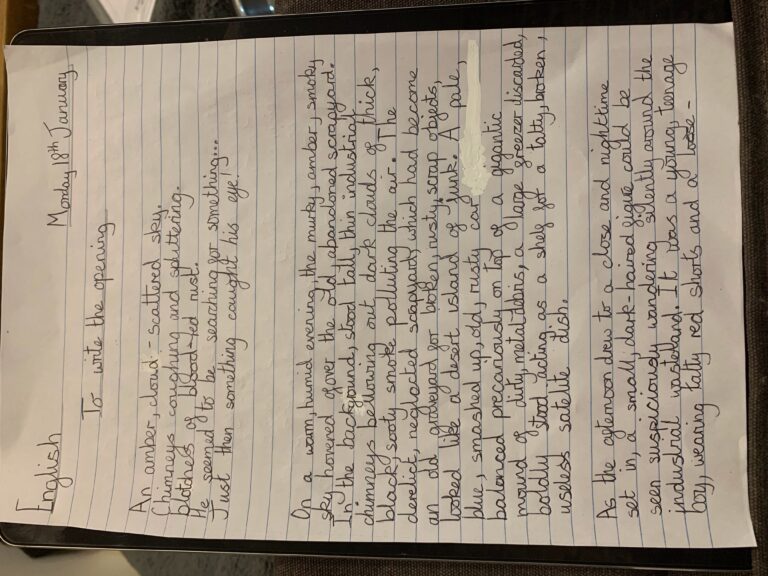 English
Monday 18th January
To write the opening
An amber, cloud-scattered sky.
Chimneys coughing and spluttering.
blotches of blood-red rust.
He seemed to be searching for something...
Just then something caught his eye!
On a warm, humid evening, the murky, amber, smoky
sky hovered over the old, abandoned scrapyard.
In the background, stood tall, thin industrial
chimneys bellowing out dark clouds of thick,
black, sooty smoke polluting the air. The
derelict, neglacted scrapyard, which had become
an old graveyard for broken, rusty, scrap objects,
looked like a desert island of junk. A pale,
blue, smashed up, old, rusty car
balanced precariously on top of a gigantic
mound of dirty, metal debris, a large greezer discarded,
boldly stood acting as a shelf for a tatty, broken,
useless satelite dish.
As the afternoon drew to a close and nighttime
set in, a small, dark-haired figure could be
seen suspiciously wandering silently around the
industrial wasteland. It was a young, teenage
boy, wearing tatty red shorts and a loose-